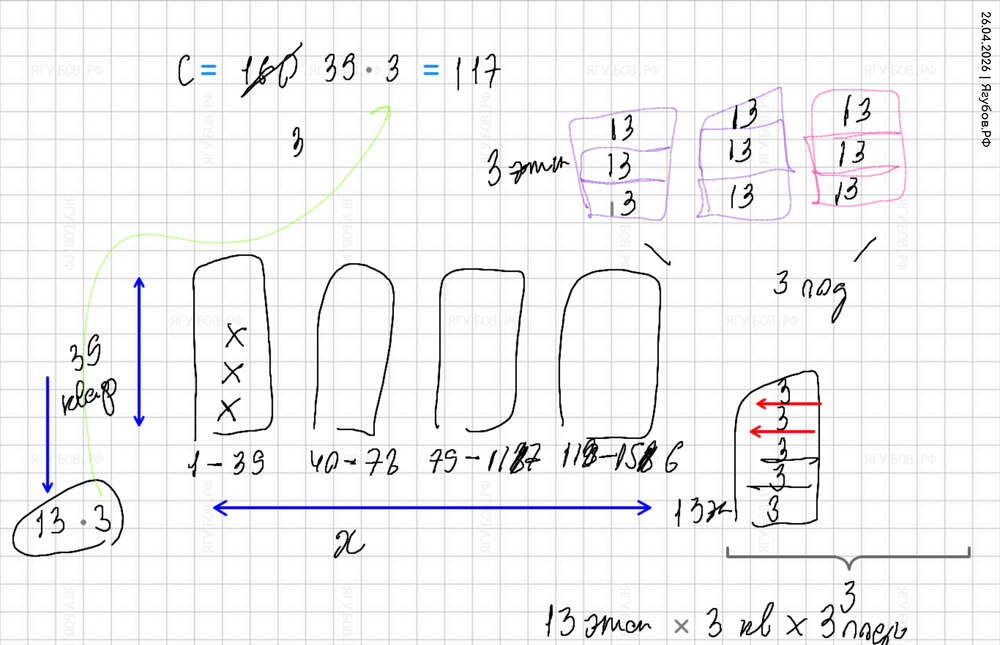 26.04.2026 | Ягубов.РФ
С = 160 39 · 3 = 117
3
3 этаж
13
13
13
13
13
13
13
13
13
3 под
39
квар
х
х
х
1 - 39
40 - 78
79 - 117
118 - 156
13 · 3
x
3
3
3
3
3
13эт
3
13 этаж × 3 кв × 3 подъ